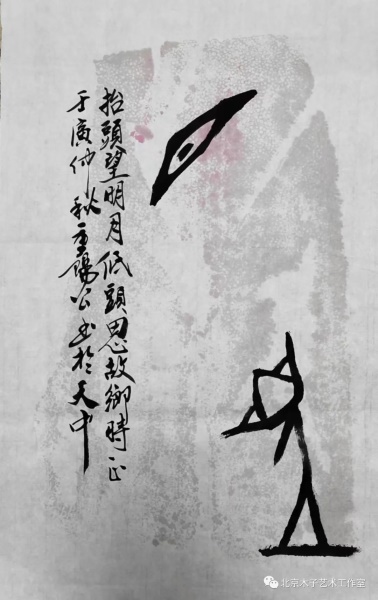 抬頭望明月低頭思故鄉時正
于寅仲秋重陽公書於天中
北京木子艺术工作室